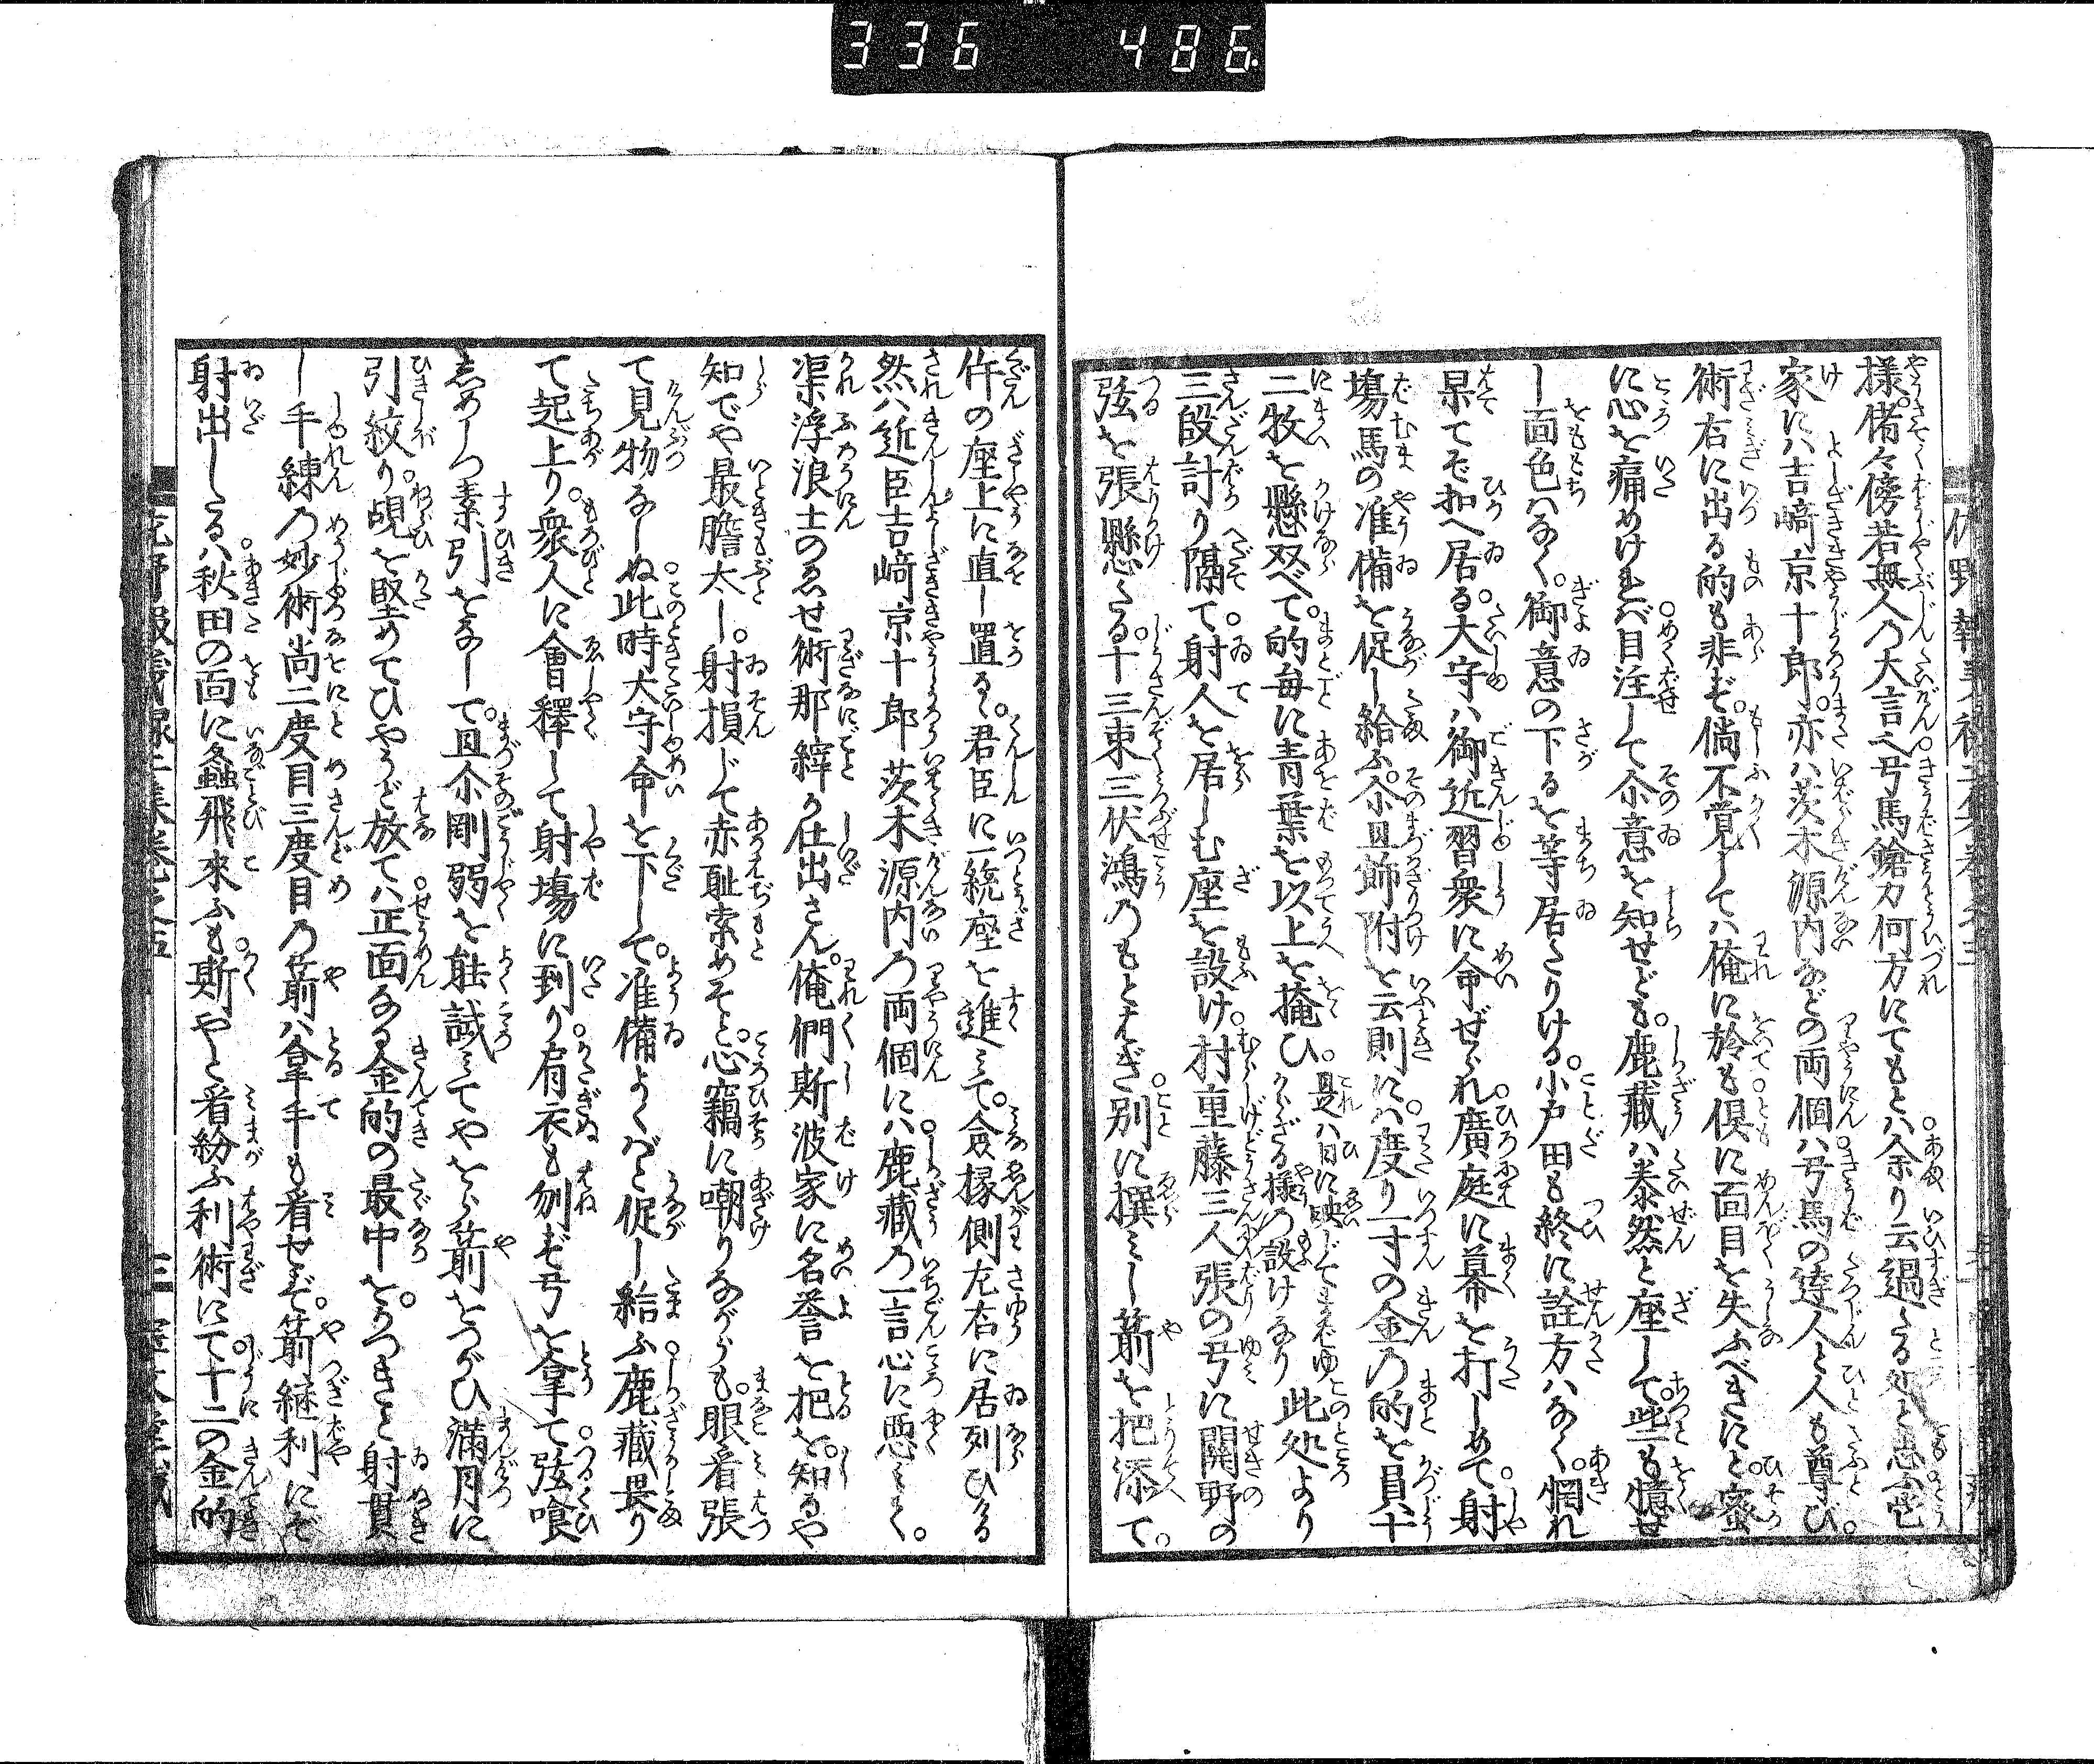 336 486
様。偖々傍若無人の大言。弓馬鎗刀何方にてもとハ。余り云過たる処と思ふ
家にハ吉﨑京十郎。亦ハ茨木源内などの両個ハ。弓馬の達人と人も尊び。
術右に出る的も非ず。倘不覚してハ俺に於も。倶に面目を失ふべきにと。密
に心を痛めけれバ。目注して介意を知せども。鹿蔵ハ泰然と座して。些も臆せ
し面色ハなく。御意の下るを等居たりける。小戸田も終に詮方ハなく。惘れ
果てぞ扣へ居る。大守ハ御近習衆に命ぜられ。廣庭に幕を打しめて。射
塲馬の准備を促し給ふ。介且餝附を云則にハ。度り一寸の金の的を員十
二牧を懸双べて。的毎に青葉を以上を掩ひ。是ハ日に映じてまばゆからざる様の設けなり此処より
三段計り隔て。射人を居しむ座を設け。村重藤三人張の弓に。関野の
弦を張懸たる。十三束三伏鴻のもとはぎ。別に撰みし箭を把添て。
件の座上に直し置る。君臣一統座を進みて。簷縁側左右に居列ひける
然ハ近臣吉﨑京十郎茨木源内の両個にハ。鹿蔵の一言心に悪みく。
渠浮浪士のゑせ術那繹か仕出さん。俺們斯波家に名誉を把を。知るや
知でや最膽太し。射損じて赤耻索めそと。心竊に嘲りながらも。眼着張
て見物なしぬ。此時大守命を下して。准備よくバと促し給ふ。鹿蔵畏り
て起上り。衆人に會釋して射塲に到り。肩衣も刎ず弓を拿て。弦喰
志めしつ素引をなして。且介剛弱を能試みてやをら箭をつがひ満月に
引絞り。覘を堅めてひやうど放てハ。正面なる金的の最中を。かつきと射貫
し手練の妙術尚二度目三度目の箭ハ拿手も着せず。箭継利にぞ
射出したるハ。秋田の面に螽飛來ふも。斯やと着紛ふ利術にて。十二の金的